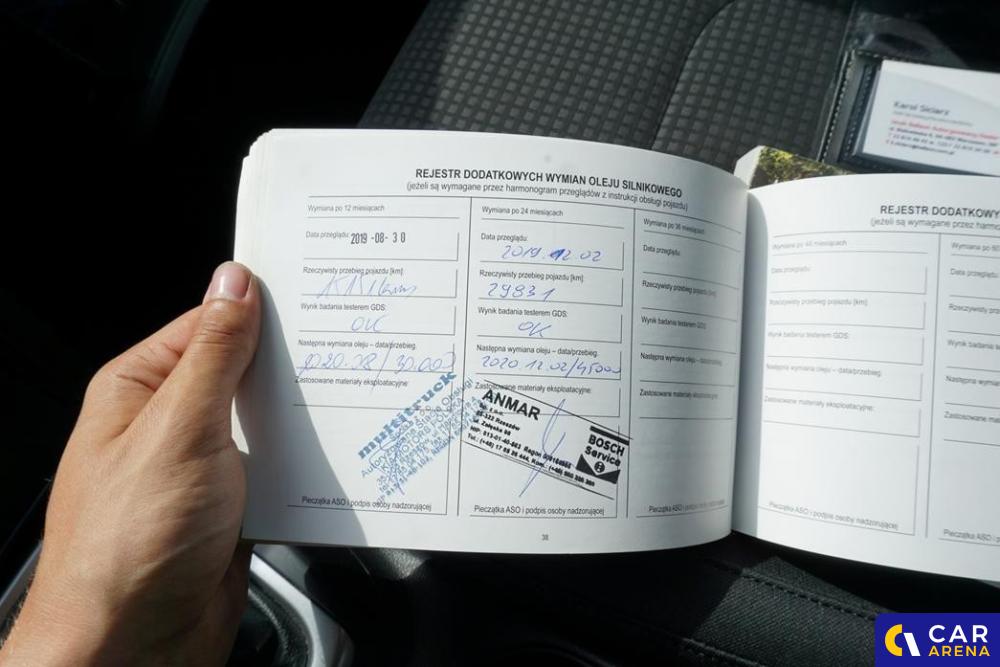 REJESTR DODATKOWYCH WYMIAN OLEJU SILNIKOWEGO
(jeżeli są wymagane przez harmonogram przeglądów z instrukcji obsługi pojazdu)
Wymiana po 12 miesiącach
Data przeglądu: 2019-08-30
Rzeczywisty przebieg pojazdu [km]:
Wynik badania testerem GDS:
OK
Następna wymiana oleju – data/przebieg.
2020.08/30.000
Zastosowane materiały eksploatacyjne:
multitruck
Pieczątka ASO i podpis osoby nadzorującej
Wymiana po 24 miesiącach
Data przeglądu:
2019.12.02
Rzeczywisty przebieg pojazdu [km]:
29831
Wynik badania testerem GDS:
OK
Następna wymiana oleju – data/przebieg.
2020.12.02/45000
Zastosowane materiały eksploatacyjne:
ANMAR
Sp. z o.o.
35-322 Rzeszów
ul. Załęska 98
BOSCH
Service
Pieczątka ASO i podpis osoby nadzorującej
Wymiana po 36 miesiącach
Data przeglądu:
Rzeczywisty przebieg pojazdu [km]:
Wynik badania testerem GDS:
Następna wymiana oleju – data/przebieg.
Zastosowane materiały eksploatacyjne:
Pieczątka ASO i podpis osoby nadzorującej
38
REJESTR DODATKOWY
(jeżeli są wymagane przez harmo
Wymiana po 48 miesiącach
Data przeglądu:
Rzeczywisty przebieg pojazdu [km]:
Wynik badania testerem GDS:
Następna wymiana oleju – data/przebieg.
Zastosowane materiały eksploatacyjne:
Pieczątka ASO i podpis osoby nadzorującej
Wymiana po 60
Data przeglądu
Rzeczywisty prz
Wynik badania te
Następna wymia
Zastosowane mat
Pieczątka ASO i p
Karol Siciarz
CAR
ARENA